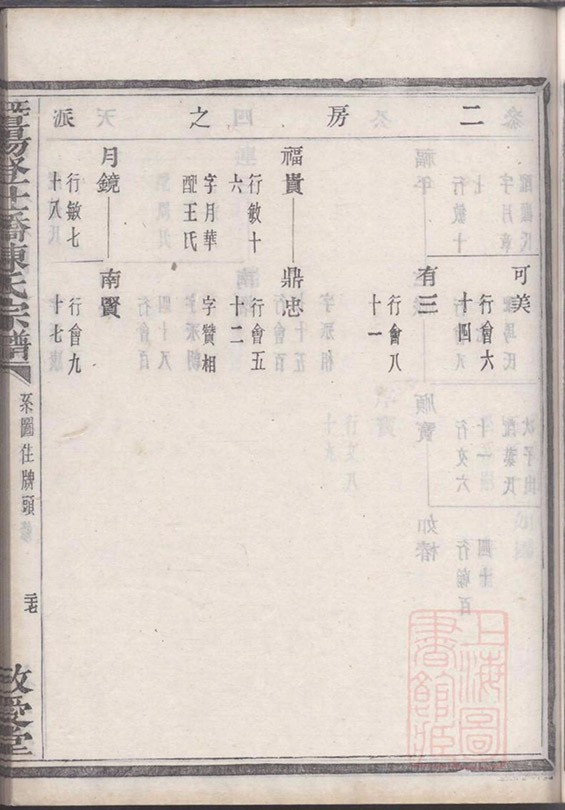 二房之派
可美
行會六
十四
有三
行會八
十一
福貴
行敏十
六
鼎忠
行會五
十二
字月華
配王氏
字贊相
月鏡
行敏七
十八
南賢
行會九
十七
暨陽
橋陳氏宗譜
系圖住牌頭
敬愛堂
上海圖
書館藏